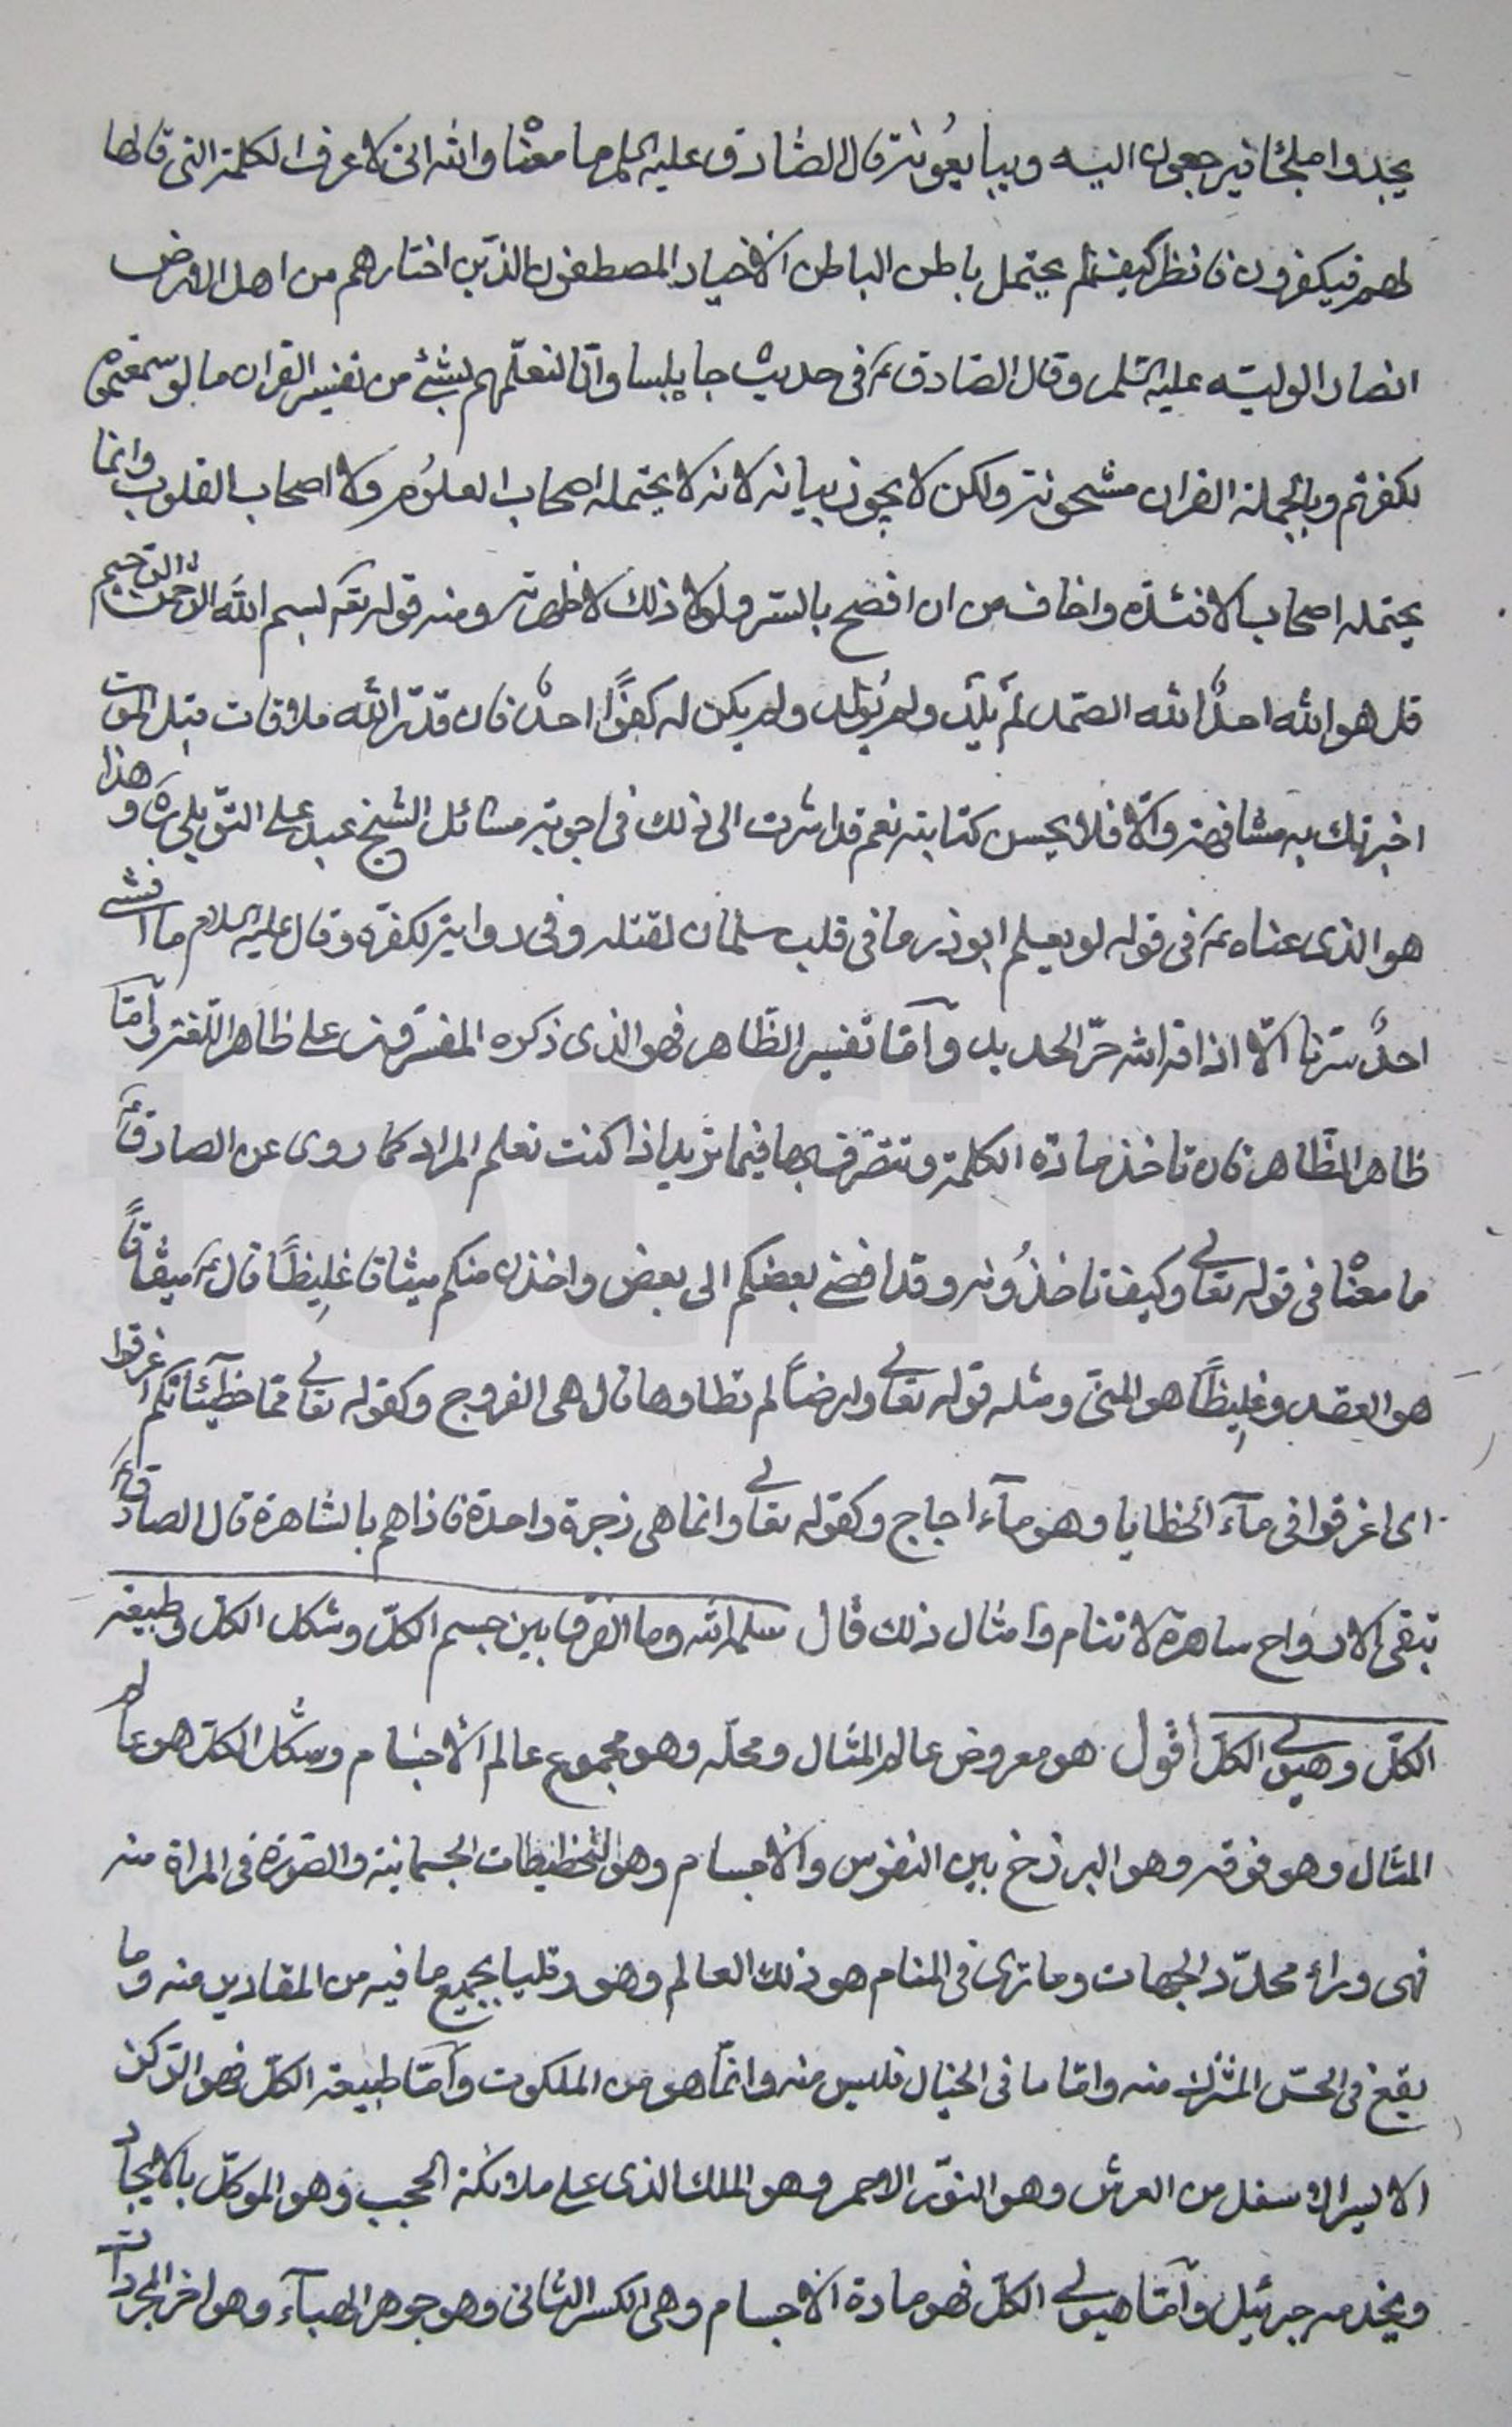 يجدوا ملجئا فيرجعون اليه ويبايعونه قال الصّادق عليه السلم ما معناه والله انى لاعرف الكلمة التى قالها
لهم فيكفرون فانظر كيف لم يحتمل باطن الباطن الاخيار المصطفون الذّين اختارهم من اهل الارض
انصار الوليّه عليه السّلم وقال الصّادق ع فى حديث جابلسا وانّا لنعلّمهم بشئ من تفسير القران ما لو سمعتموه
لكفرتم وبالجملة القران مشحونة ولكن لا يجوز بيانه لانه لا يحتمله اصحاب العلوم ولا اصحاب القلوب وانما
يحتمله اصحاب الافئدة واخاف من ان افصح بالسّر ولولا ذلك لاظهرته ومنه قوله تع بسم الله الرّحمن الرّحيم
قل هو الله احدٌ الله الصّمد لم يلد ولم يُولد ولم يكن له كفوًا احدٌ فان قدّر الله ملاقات قبل الموت
اخبرتك به مشافهة والّا فلا يحسن كتابته نعم قد اشرت الى ذلك فى اجوبة مسائل الشيخ عبد على التوبلى ره وهذا
هو الذى عناه ع فى قوله لو يعلم ابوذر ما فى قلب سلمان لقتله وفى رواية لكفّره وقال عليه السلام ما افشى
احدٌ سرّنا الّا اذاقه الله حرّ الحديد وامّا تفسير الظّاهر فهو الذى ذكره المفسّرون على ظاهر اللّغة وامّا
ظاهر الظّاهر فان تاخذ مادّة الكلمة وتتصّرف بها فيما تريد اذا كنت تعلم المراد كما روى عن الصادق ع
ما معناه فى قوله تعالى وكيف تاخذُونه وقد افضى بعضكم الى بعض واخذن منكم ميثاقا غليظًا قال ع ميثاقًا
هو العقد وغليظًا هو المنىّ ومثله قوله تعالى وارضاً لم تطاوها قال هى الفروج وكقوله تعالى ممّا خطيئاتكم اغرقوا
اى اغرقوا فى مآء الخطايا وهو مآء اجاج وكقوله تعالى وانما هى زجرة واحدة فاذاهم بالسّاهرة قال الصادق ع
تبقى الارواح ساهرة لا تنام وامثال ذلك قال سلمه الله وما الفرق بين جسم الكلّ وشكل الكلّ وطبيعة
الكلّ وهيولى الكلّ اقول هو معروض عالم المثال ومحلّه وهو مجموع عالم الاجسام وشكل الكلّ هو عالم
المثال وهو فوقه وهو البرزخ بين النفوس والاجسام وهو التّخطيطات الجسمانية والصّورة فى المراة منه
فهى وراء محدّد الجهات وما ترى فى المنام هو ذلك العالم وهو رقليا بجميع ما فيه من المقادير منه وما
يقع فى الحسّ المشترك منه وامّا ما فى الخيال فليس منه وانّما هو من الملكوت وامّا طبيعة الكلّ فهو الرّكن
الايسر الاسفل من العرش وهو النوّر الاحمر وهو الملك الذى على ملائكة الحجب وهو الموكّل بالايجاد
ويخدمه جبرئيل وامّا هيولى الكلّ فهو مادة الاجسام وهى الكسر الثانى وهو جوهر الهبآء وهو اخر المجردات